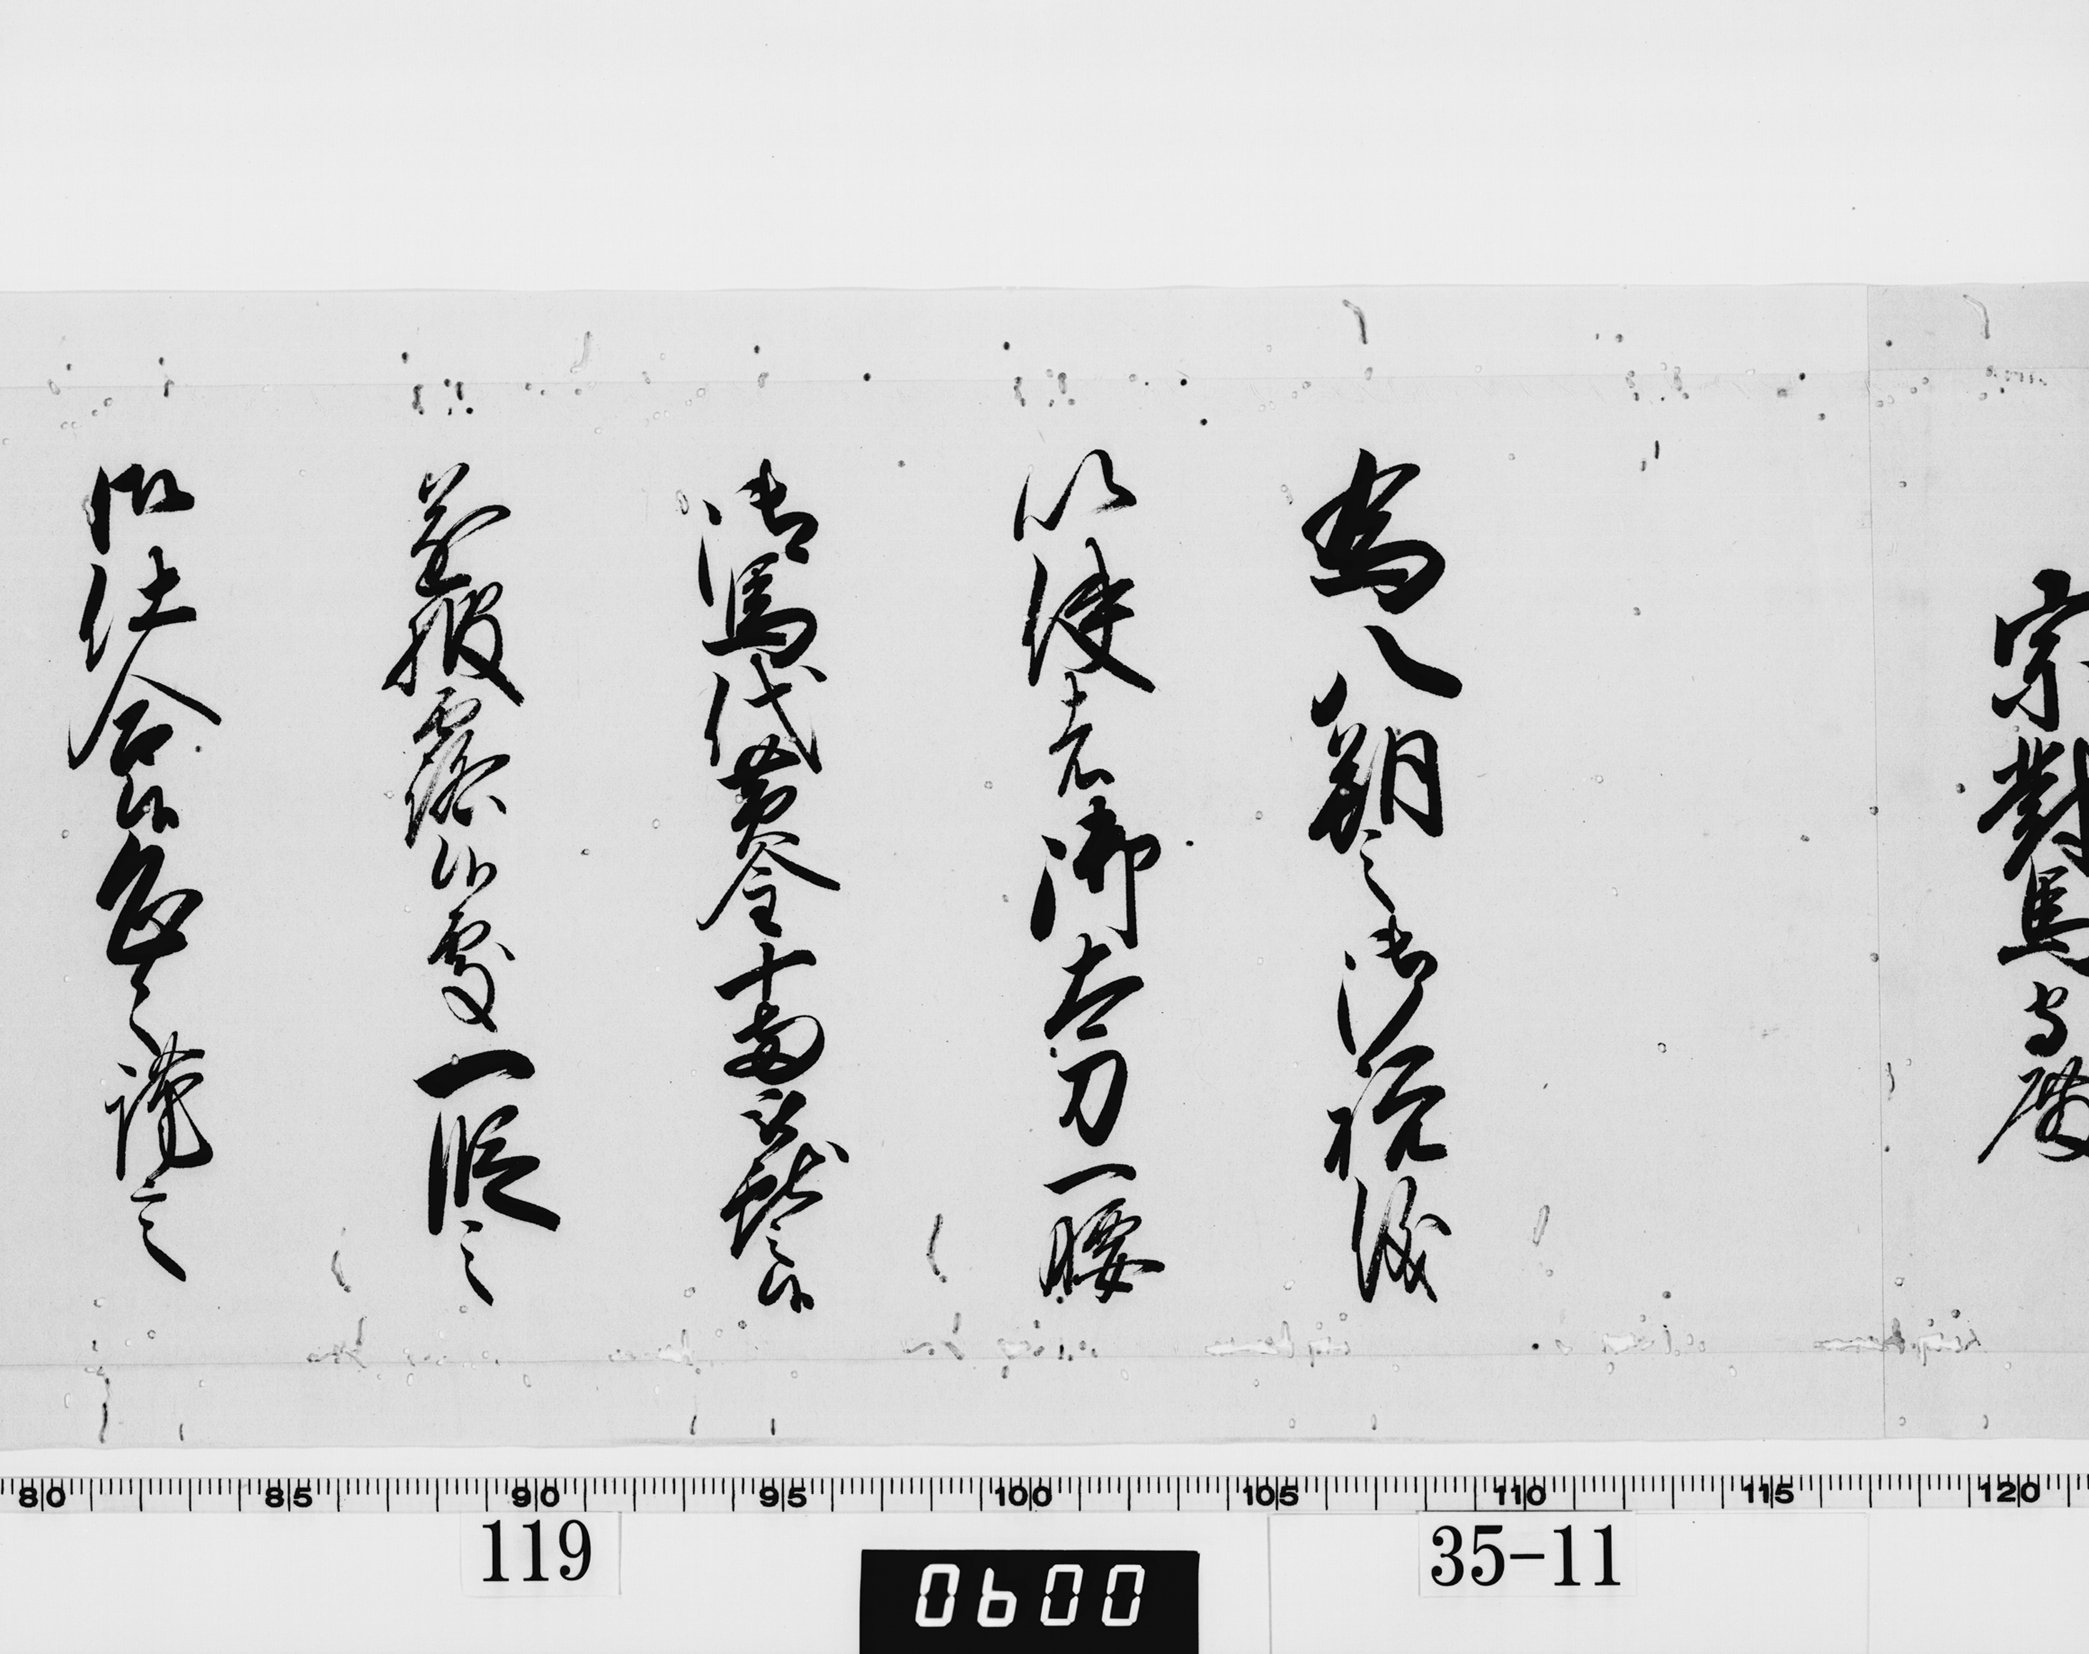 宗對馬守殿
為八朔之御祝儀
以使者御太刀一腰
御馬代黄金十両被献之候
遂披露候處一段之
御仕合候恐々謹言
80 85 90 95 100 105 110 115 120
119
0600
35-11